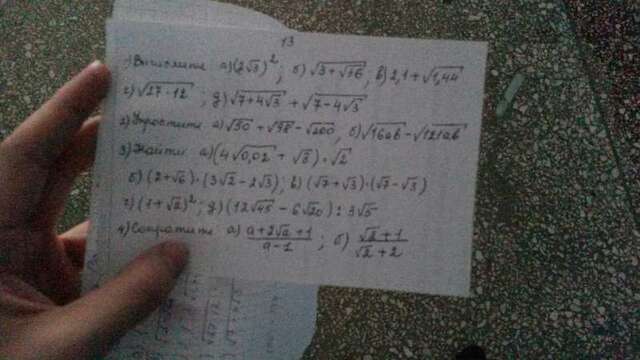 13
1) Вычислите а) (2√3)²; б) √3+√16; в) 2,1+√1,44
г) √27·12; д) √7+4√3 + √7-4√3
2) Упростите а) √50 + √98 - √200, б) √16ab - √121ab
3) Найти: а) (4√0,02 + √3)·√2
б) (2+√6)·(3√2-2√3); в) (√7+√3)·(√7-√3)
г) (1+√2)²; д) (12√45 - 6√20) : 3√5
4) Сократите а) a+2√a+1 / a-1; б) √2+1 / √2+2